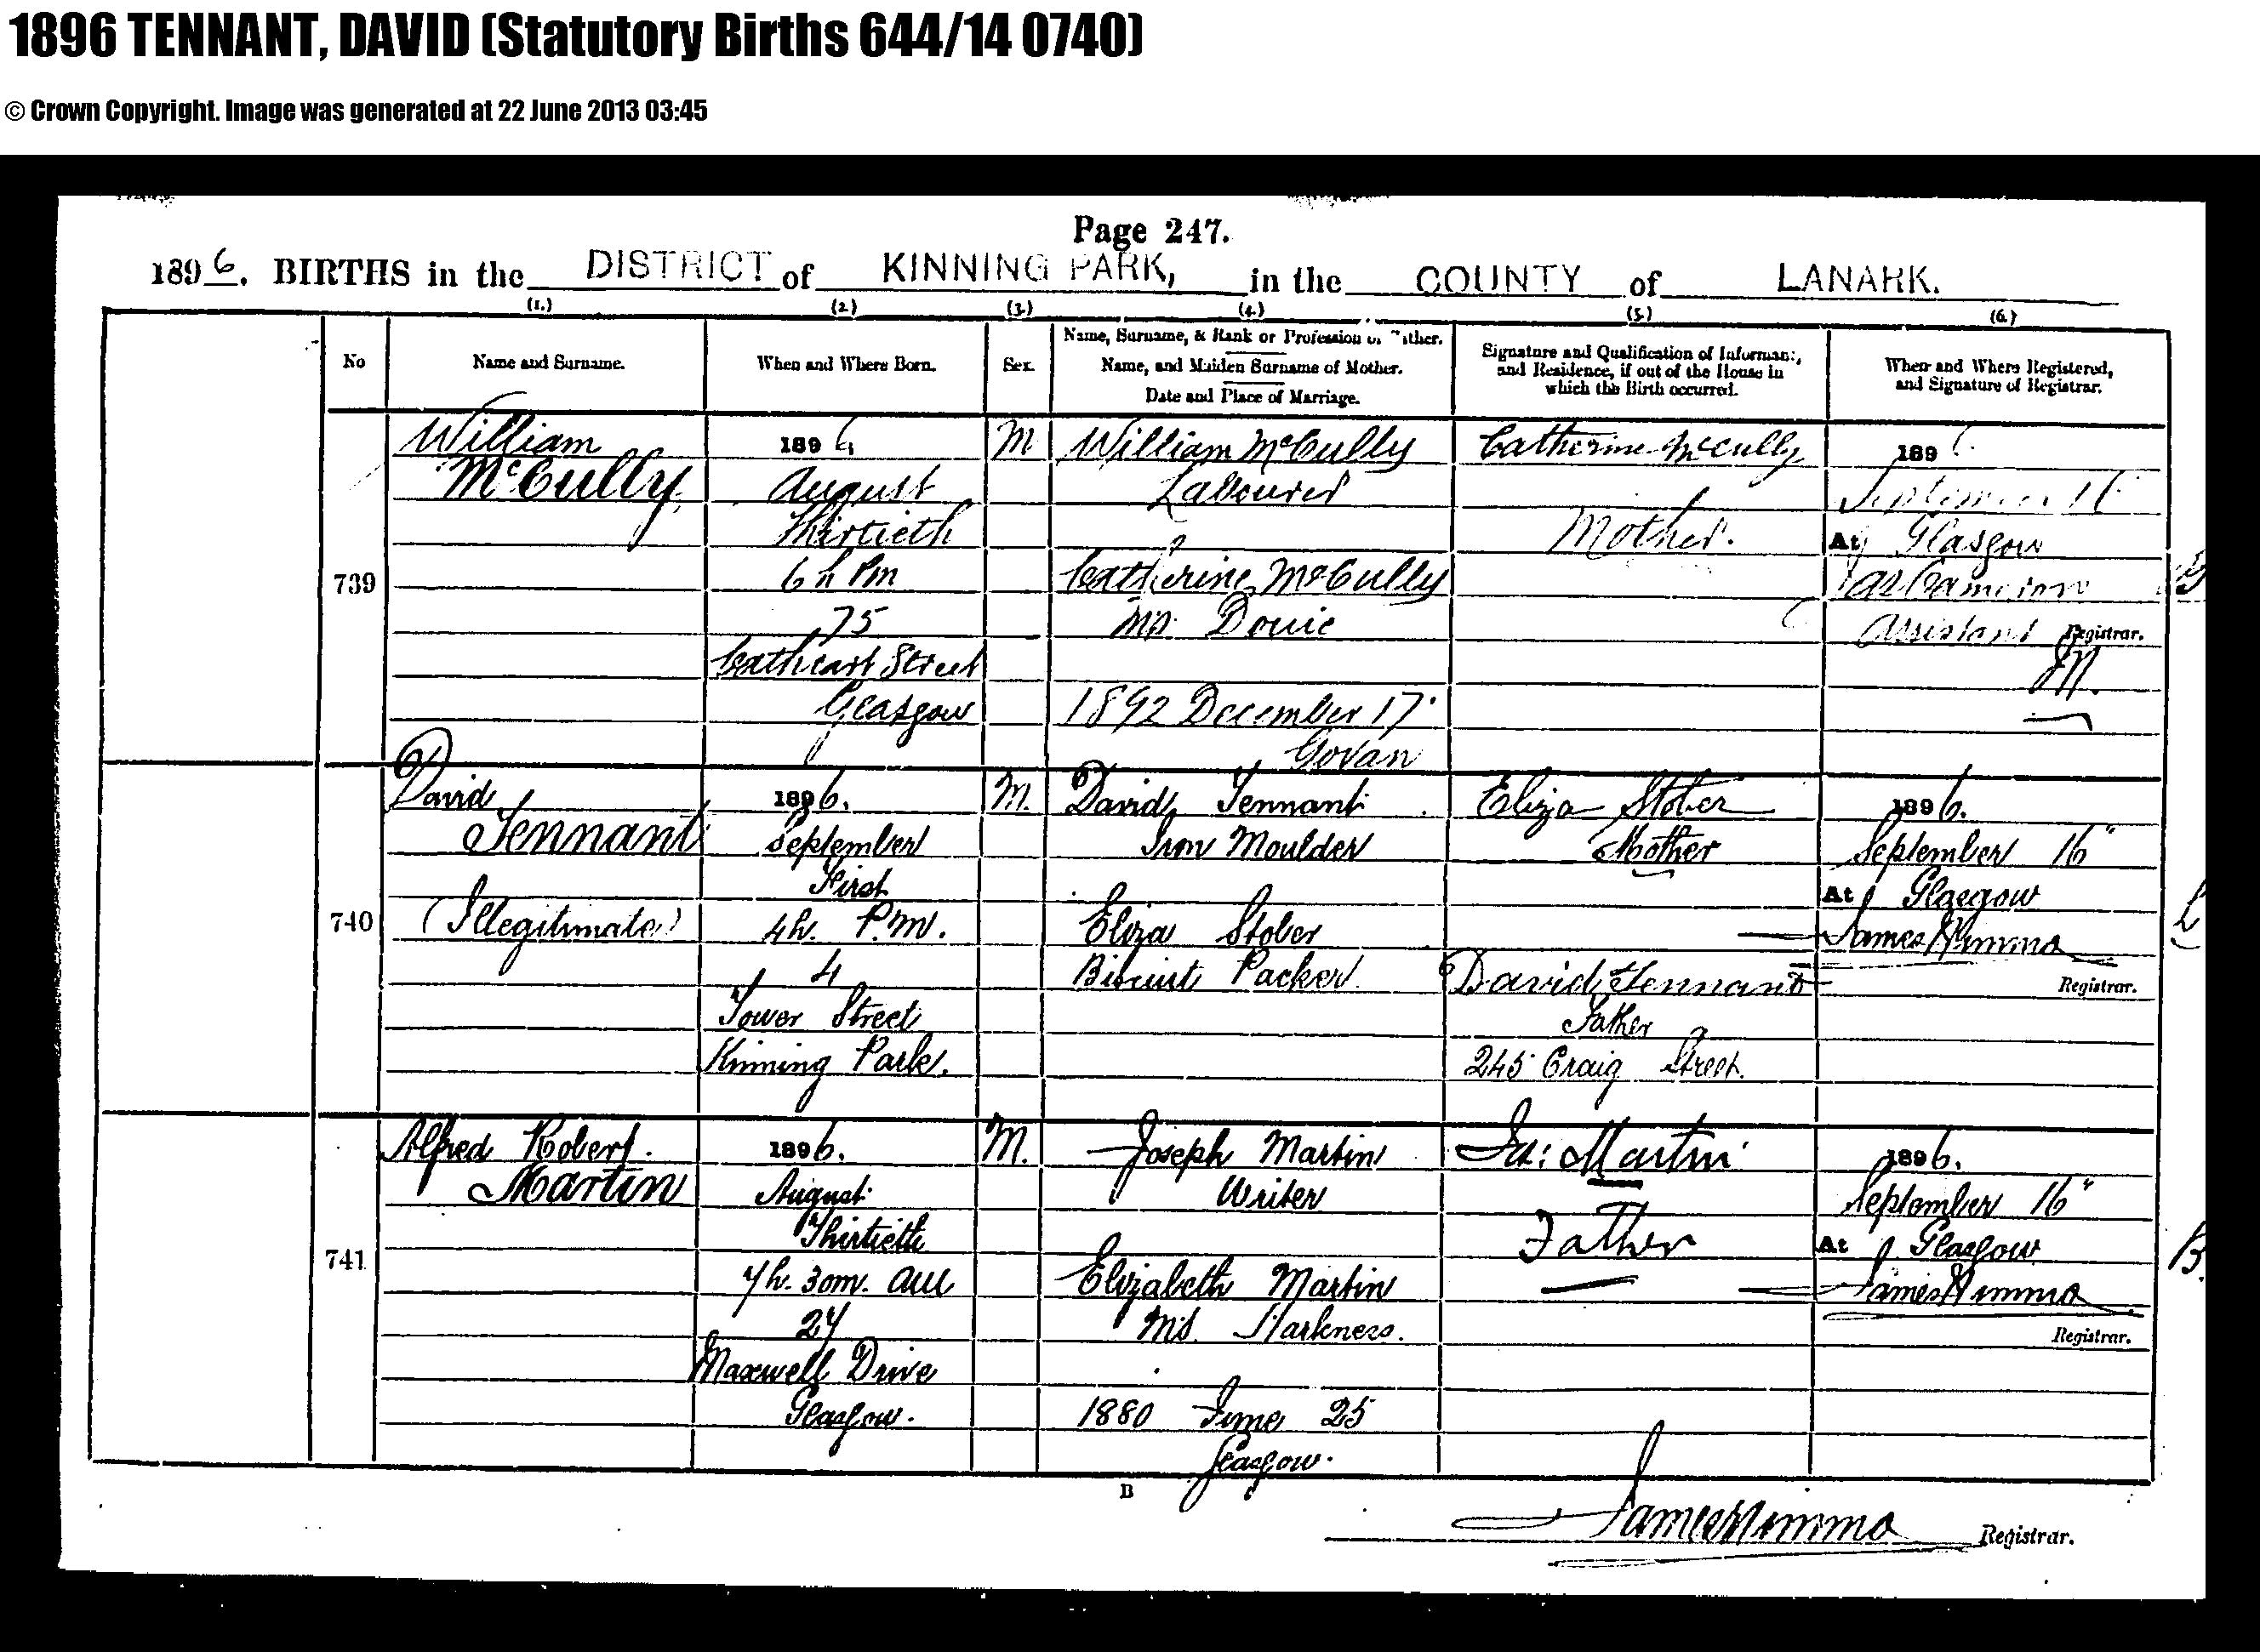 1896 TENNANT, DAVID (Statutory Births 644/14 0740)
© Crown Copyright. Image was generated at 22 June 2013 03:45
Page 247.
1896. BIRTHS in the DISTRICT of KINNING PARK, in the COUNTY of LANARK.
(1.) (2.) (3.) (4.) (5.) (6.)
No
Name and Surname.
When and Where Born.
Sex.
Name, Surname, & Rank or Profession of Father.
Name, and Maiden Surname of Mother.
Date and Place of Marriage.
Signature and Qualification of Informant,
and Residence, if out of the House in
which the Birth occurred.
When and Where Registered,
and Signature of Registrar.
739
William
McCully
1896
August
Thirtieth
6h Pm
75
Cathcart Street
Glasgow
M
William McCully
Labourer
Catherine McCully
MS Douie
1892 December 17
Govan
Catherine McCully
Mother.
189
September 16
At Glasgow
Jas Cameron
Assistant Registrar.
JN.
740
David
Tennant
(Illegitimate)
1896.
September
First
4h. P.M.
4
Tower Street
Kinning Park.
M.
David Tennant
Iron Moulder
Eliza Stober
Biscuit Packer
Eliza Stober
Mother
David Tennant
Father
245 Craig Street.
1896.
September 16"
At Glasgow
James Nimmo
Registrar.
L
741
Alfred Robert
Martin
1896.
August
Thirtieth
7h. 30m. AM
27
Maxwell Drive
Glasgow.
M.
Joseph Martin
Writer
Elizabeth Martin
MS. Harkness.
1880 June 25
Glasgow.
Jos: Martin
Father
1896.
September 16"
At Glasgow
James Nimmo
Registrar.
B.
B
James Nimmo Registrar.